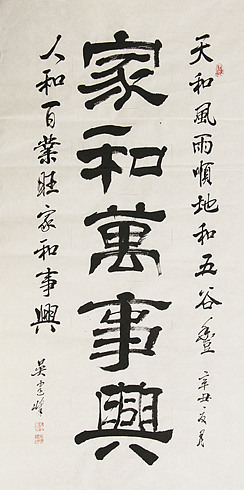 天和風雨順地和五谷豐
辛丑夏月
家和萬事興
人和百業旺家和事興
吳建